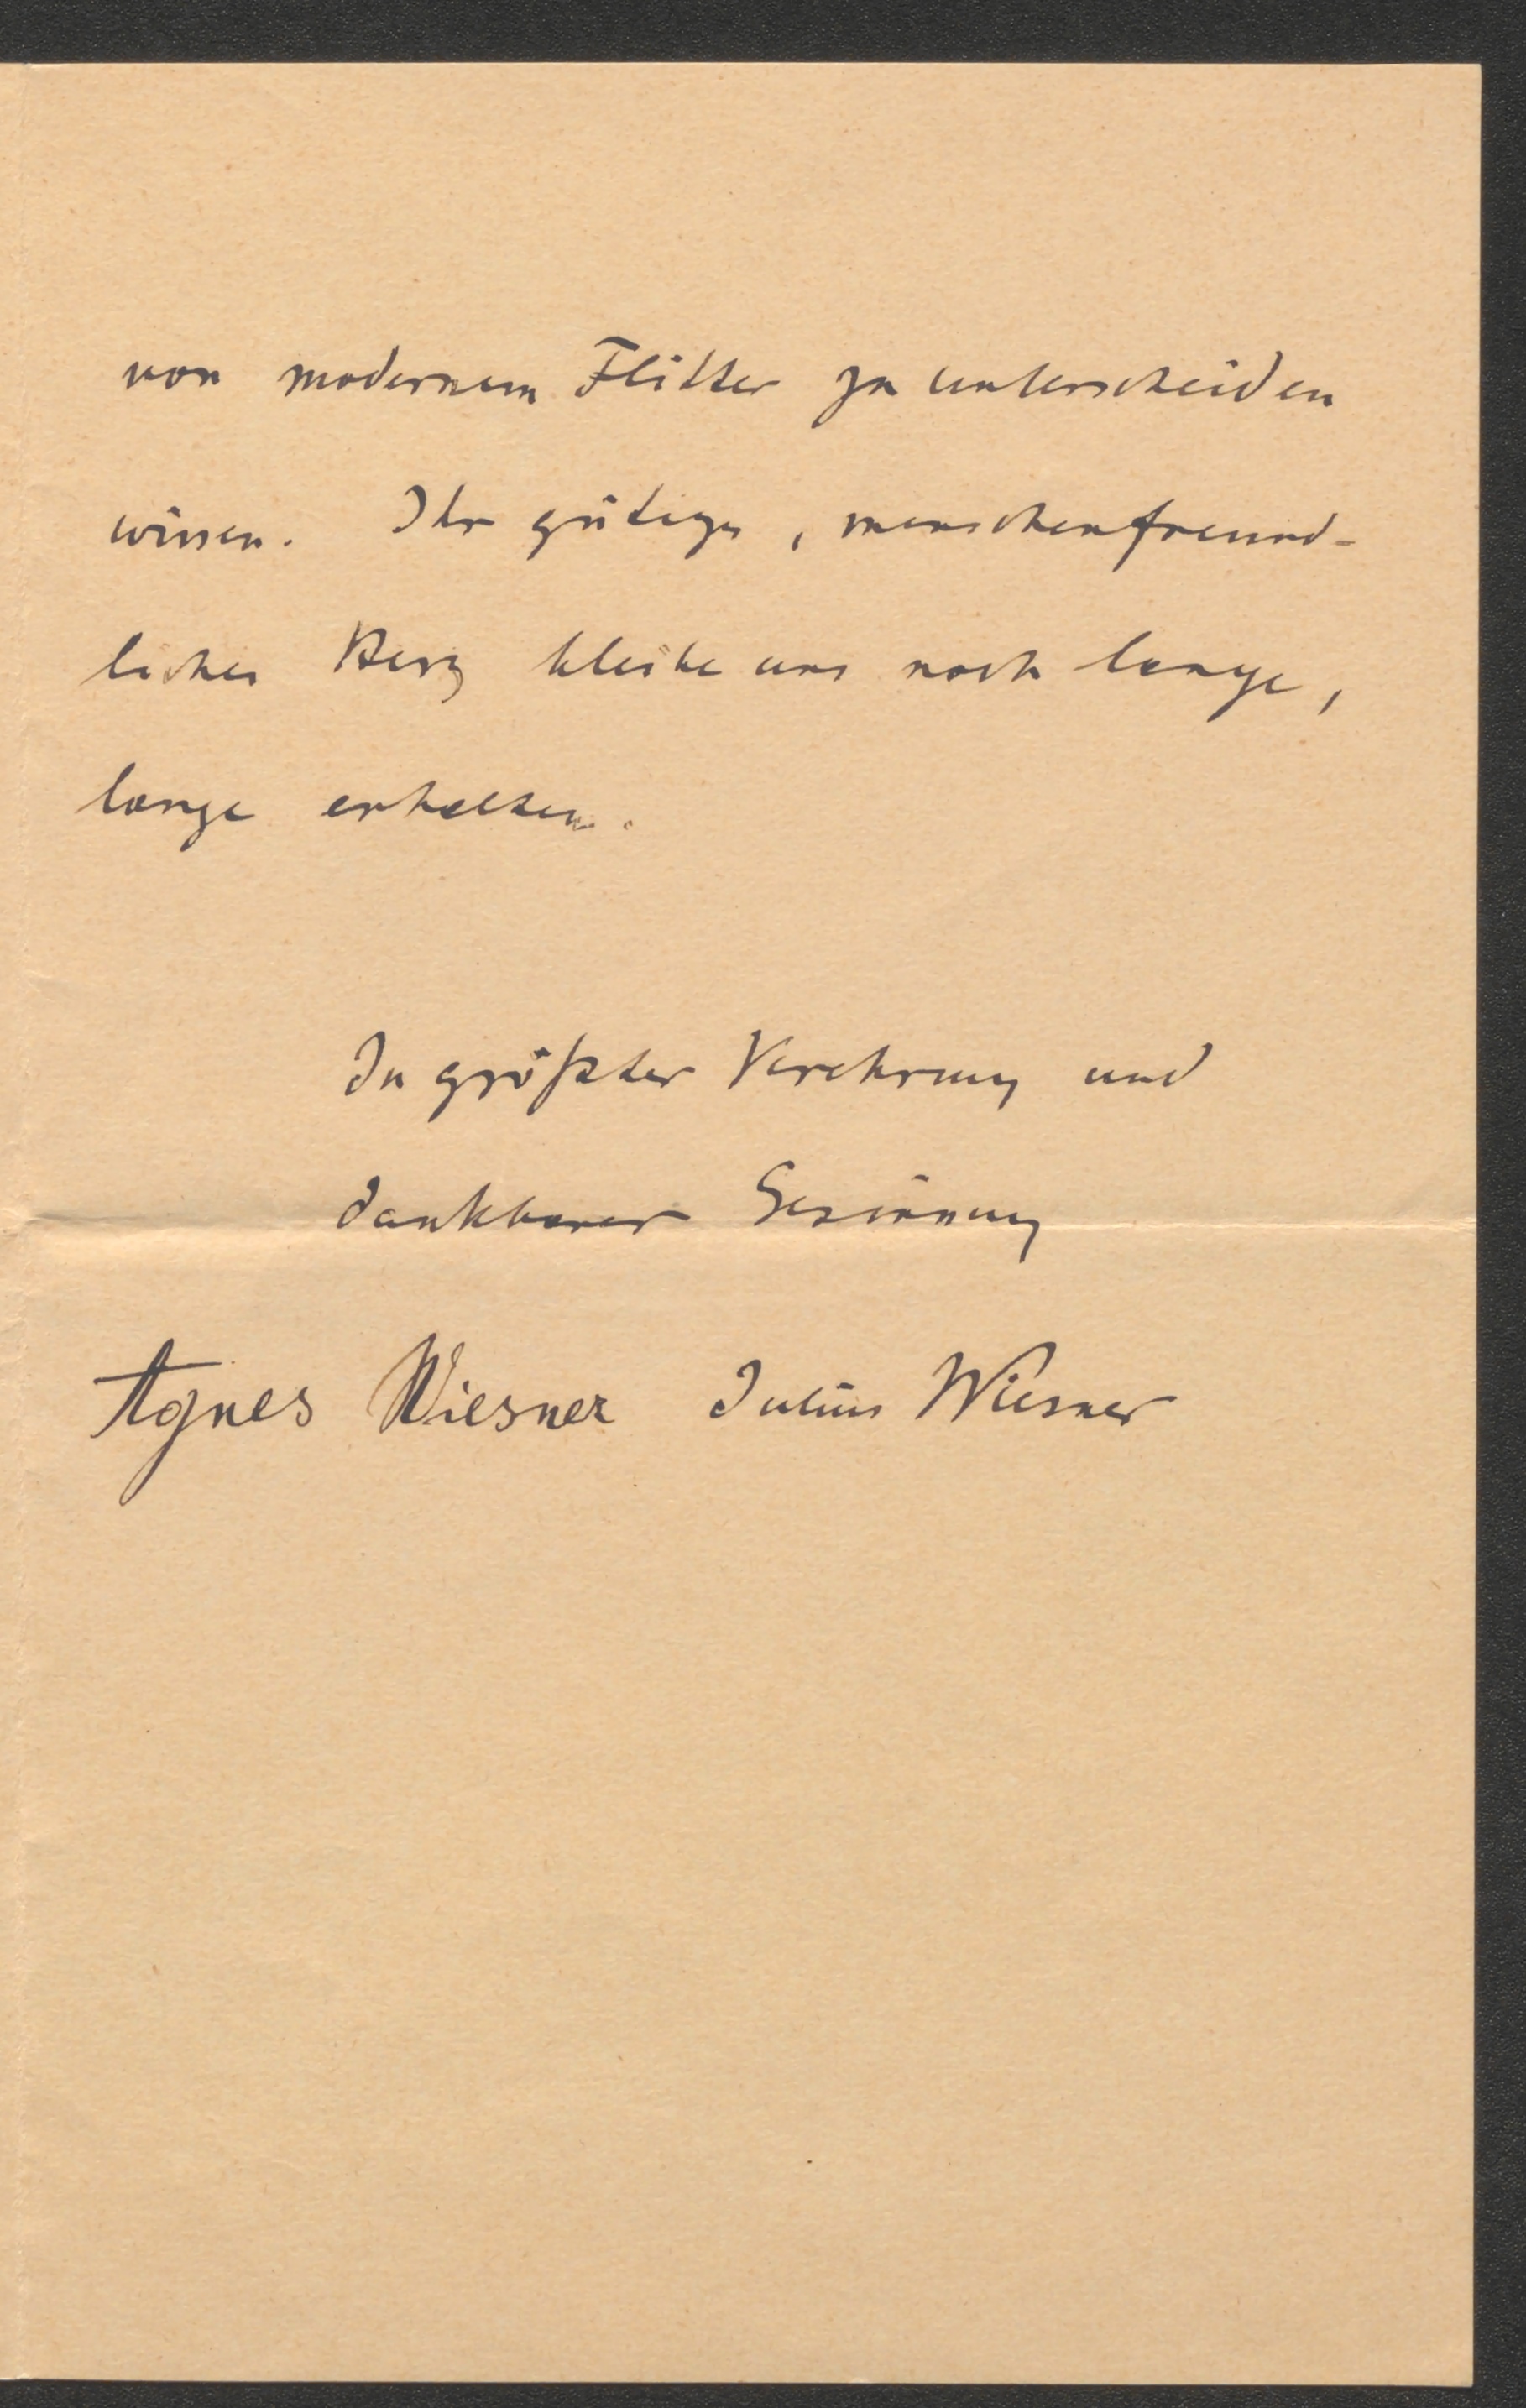 von modernem Flitter zu unterscheiden
wissen. Ihr gütiges, menschenfreund-
liches Herz bleibe uns noch lange,
lange erhalten.
In größter Verehrung und
dankbarer Gesinnung
Agnes Wiesner Julius Wiesner